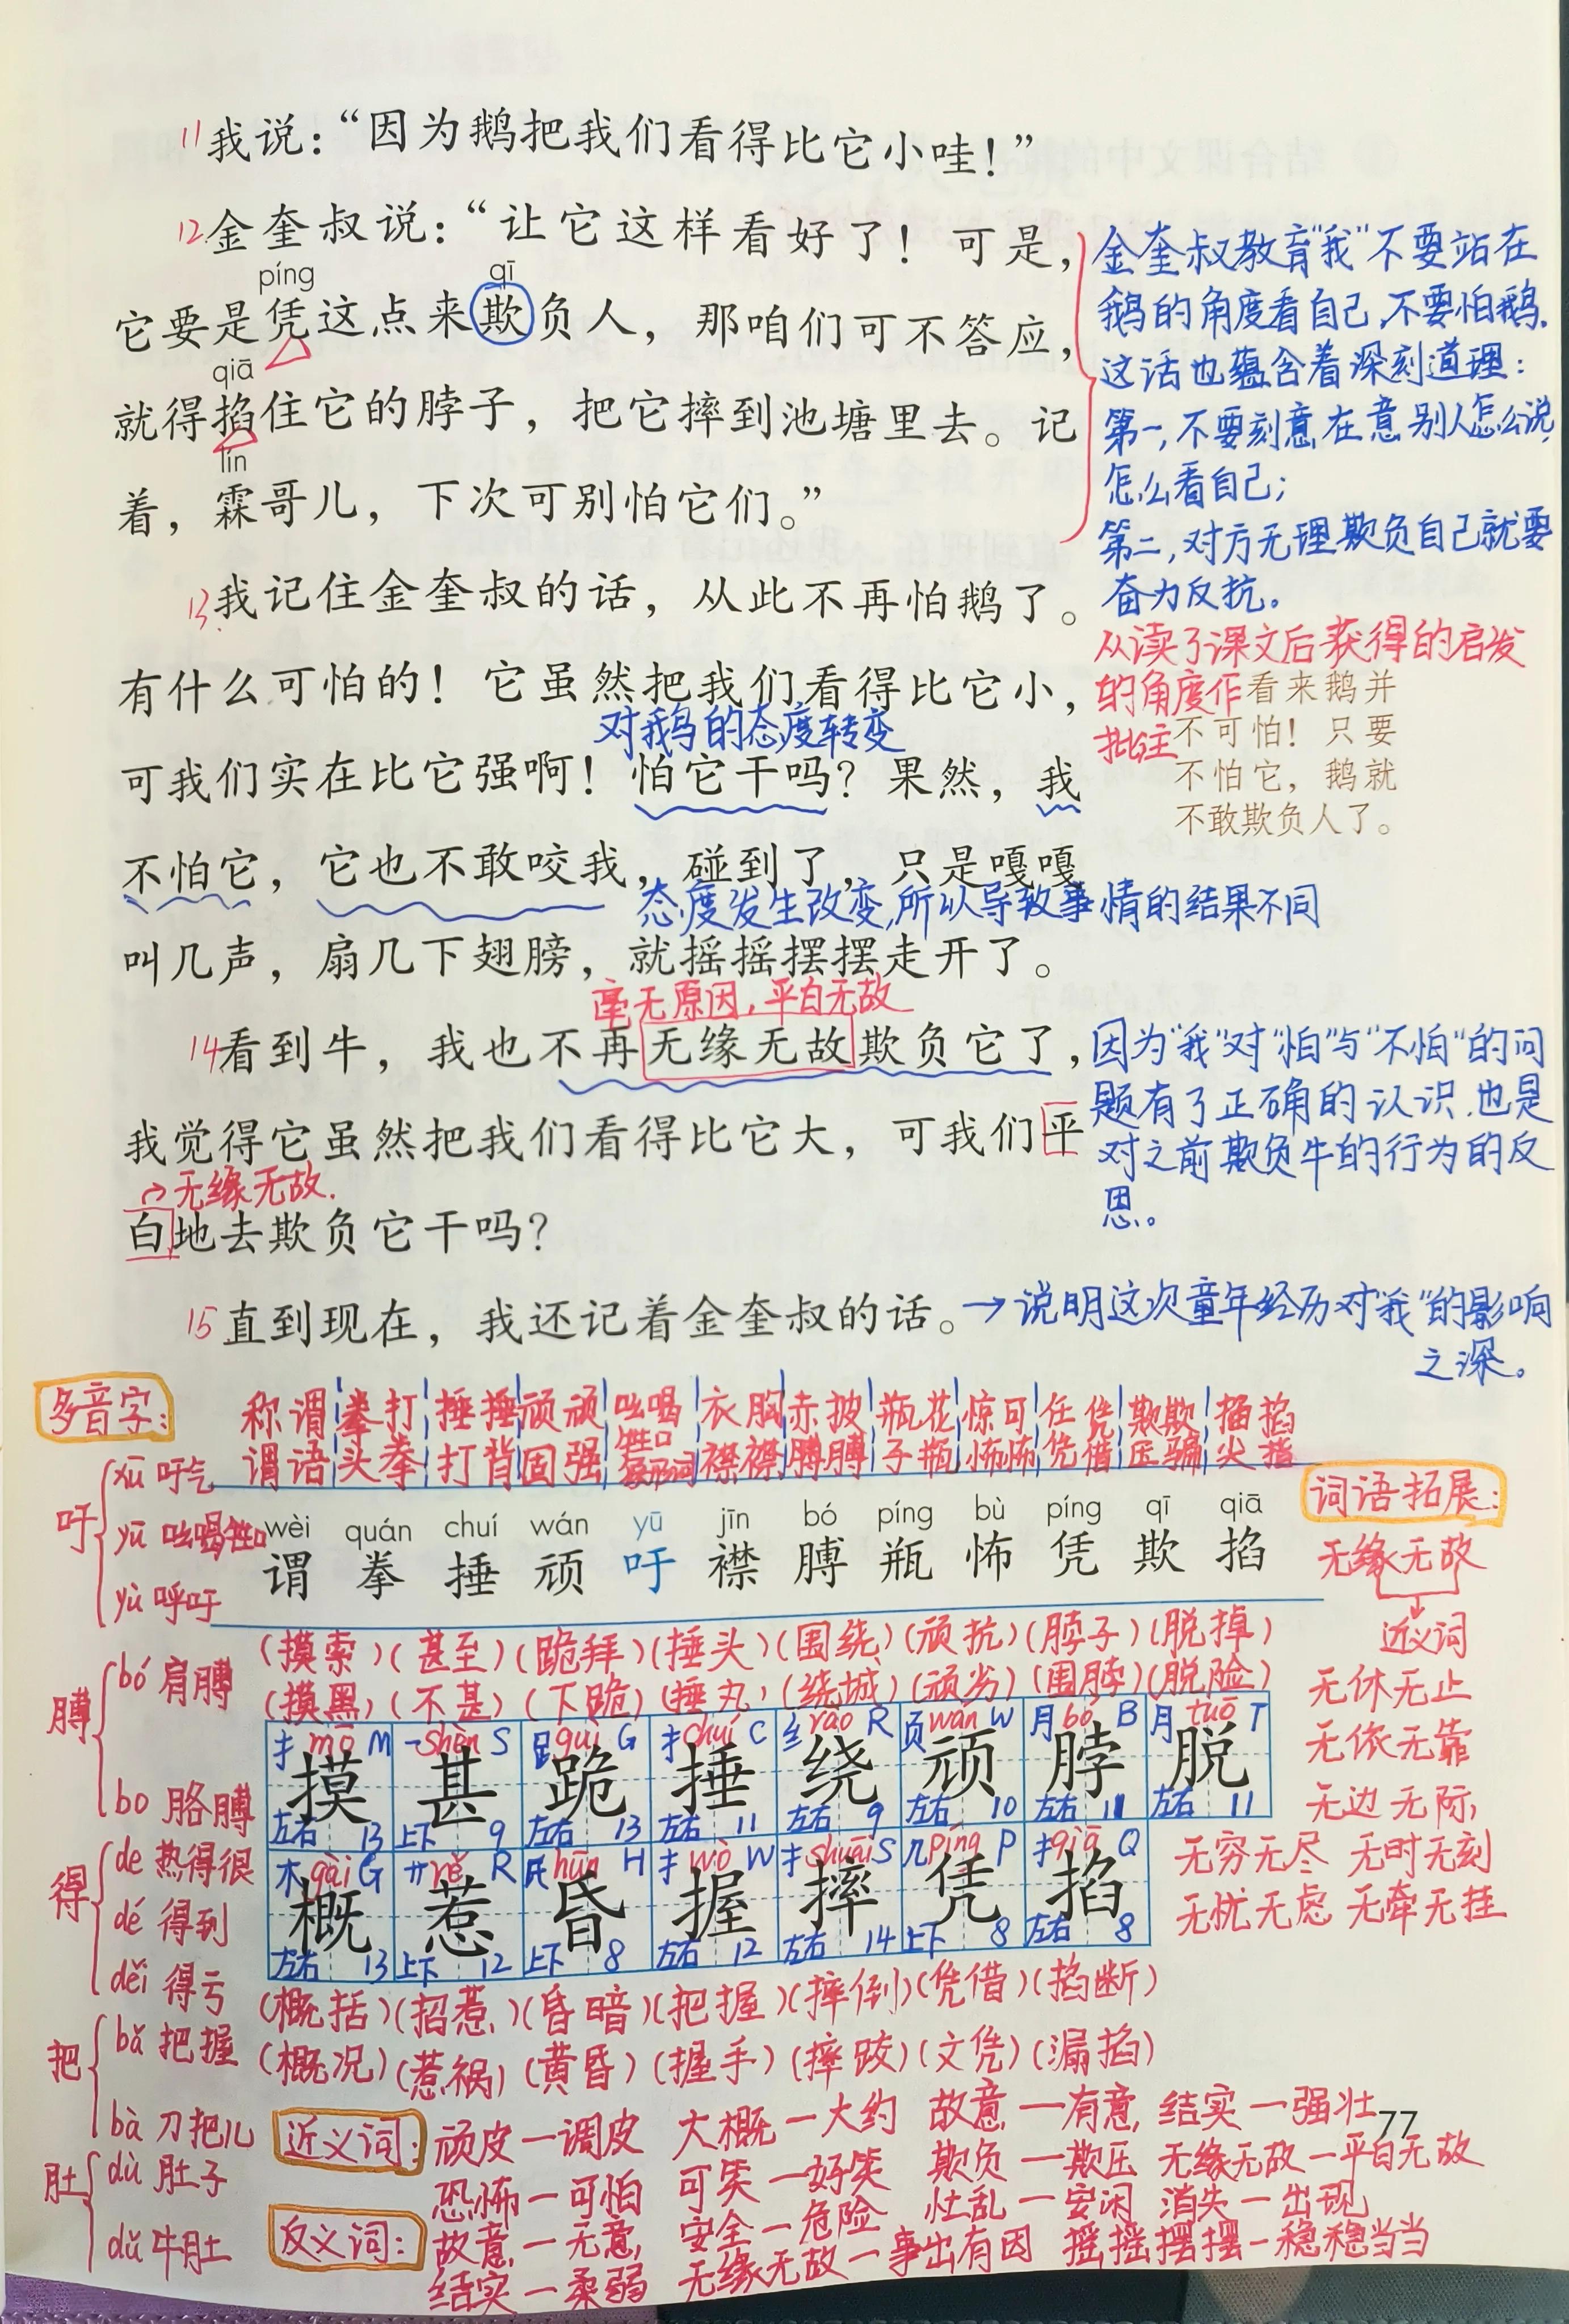 11 我说：“因为鹅把我们看得比它小哇！”
12 金奎叔说：“让它这样看好了！可是，
píng qī
它要是凭这点来欺负人，那咱们可不答应，
qiā
就得掐住它的脖子，把它摔到池塘里去。记
lín
着，霖哥儿，下次可别怕它们。”
金奎叔教育“我”不要站在
鹅的角度看自己，不要怕鹅。
这话也蕴含着深刻道理：
第一，不要刻意在意别人怎么说，
怎么看自己；
第二，对方无理欺负自己就要
奋力反抗。
13 我记住金奎叔的话，从此不再怕鹅了。
有什么可怕的！它虽然把我们看得比它小，
对鹅的态度转变
可我们实在比它强啊！怕它干吗？果然，我
不怕它，它也不敢咬我，碰到了，只是嘎嘎
态度发生改变，所以导致事情的结果不同
叫几声，扇几下翅膀，就摇摇摆摆走开了。
从读了课文后获得的启发
的角度作
批注
看来鹅并
不可怕！只要
不怕它，鹅就
不敢欺负人了。
毫无原因，平白无故
14 看到牛，我也不再无缘无故欺负它了，
我觉得它虽然把我们看得比它大，可我们平
→无缘无故.
白地去欺负它干吗？
因为“我”对“怕”与“不怕”的问
题有了正确的认识，也是
对之前欺负牛的行为的反
思。
15 直到现在，我还记着金奎叔的话。→说明这次童年经历对“我”的影响
之深。
多音字：
吁
xū 吁气
yū 吆喝牲口
yù 呼吁
膊
bó 肩膊
bo 胳膊
得
de 热得很
dé 得到
děi 得亏
把
bǎ 把握
bà 刀把儿
肚
dù 肚子
dǔ 牛肚
称谓 拳打 捶捶 顽顽 吆喝 衣胸 赤披 瓶花 惊可 任凭 欺欺 掐掐
谓语 头拳 打背 固强 牲口 襟襟 膊膊 子瓶 怖怖 凭借 压骗 尖指
wèi quán chuí wán yū jīn bó píng bù píng qī qiā
谓 拳 捶 顽 吁 襟 膊 瓶 怖 凭 欺 掐
词语拓展：
无缘无故
近义词
无休无止
无依无靠
无边无际，
无穷无尽 无时无刻
无忧无虑 无牵无挂
(摸索)(甚至)(跪拜)(捶头)(围绕)(顽抗)(脖子)(脱掉)
(摸黑)(不甚)(下跪)(捶丸)(绕城)(顽劣)(围脖)(脱险)
扌mō M 一shèn S 𧾷guì G 扌chuí C 纟rào R 页wán W 月bó B 月tuō T
摸 甚 跪 捶 绕 顽 脖 脱
左右 13 上下 9 左右 13 左右 11 左右 9 左右 10 左右 11 左右 11
木gài G 艹rě R 氏hūn H 扌wò W 扌shuāi S 几píng P 扌qiā Q
概 惹 昏 握 摔 凭 掐
左右 13 上下 12 上下 8 左右 12 左右 14 上下 8 左右 8
(概括)(招惹)(昏暗)(把握)(摔倒)(凭借)(掐断)
(概况)(惹祸)(黄昏)(握手)(摔跤)(文凭)(漏掐)
近义词：顽皮—调皮 大概—大约 故意—有意 结实—强壮
恐怖—可怕 可笑—好笑 欺负—欺压 无缘无故—平白无故
反义词：故意—无意 安全—危险 忙乱—安闲 消失—出现
结实—柔弱 无缘无故—事出有因 摇摇摆摆—稳稳当当
77